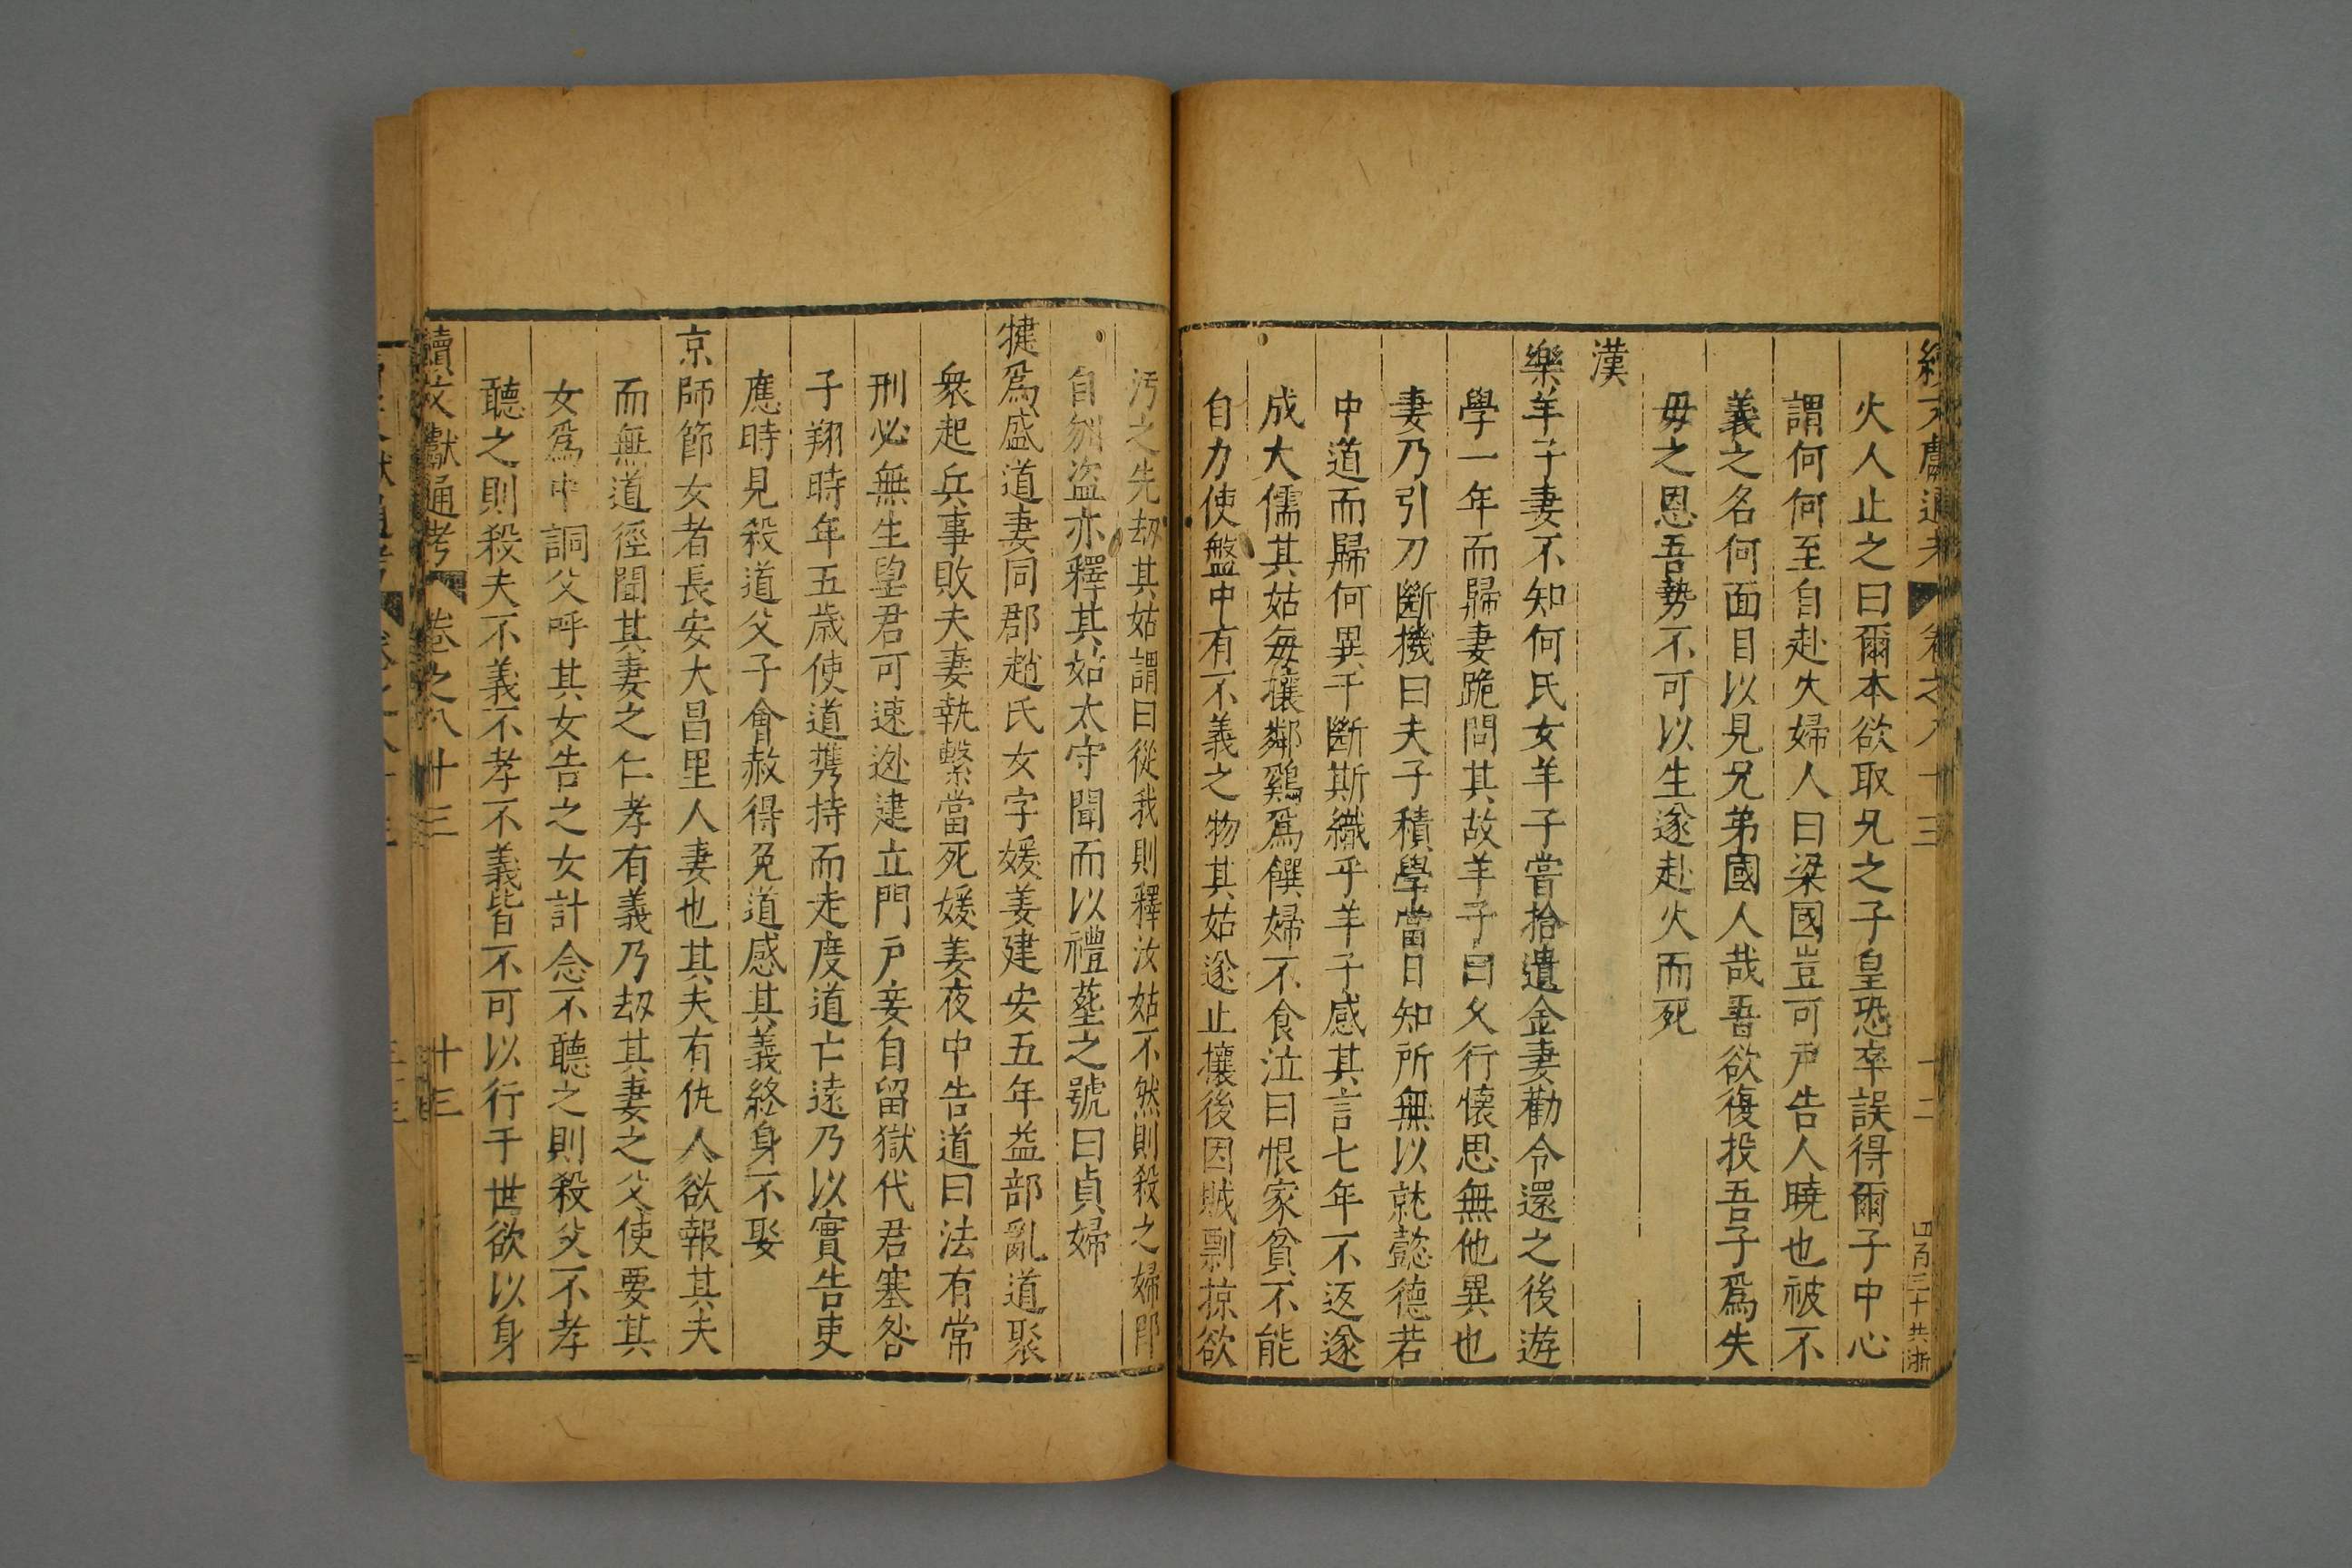 續文獻通考 卷之八十三 十二 四百三十共浙
火人止之曰爾本欲取兄之子皇恐卒誤得爾子中心
謂何何至自赴火婦人曰梁國豈可戸告人曉也被不
義之名何面目以見兄弟國人哉吾欲復投吾子爲失
毋之恩吾勢不可以生遂赴火而死
漢
樂羊子妻不知何氏女羊子嘗拾遺金妻勸令還之後遊
學一年而歸妻跪問其故羊子曰乆行懷思無他異也
妻乃引刀斷機曰夫子積學當日知所無以就懿德若
中道而歸何異于斷斯織乎羊子感其言七年不返遂
成大儒其姑每攘鄰鷄爲饌婦不食泣曰恨家貧不能
自力使盤中有不義之物其姑遂止攘後因賊剽掠欲
汚之先刼其姑謂曰從我則釋汝姑不然則殺之婦即
自刎盗亦釋其姑太守聞而以禮塟之號曰貞婦
犍爲盛道妻同郡趙氏女字媛姜建安五年益部亂道聚
衆起兵事敗夫妻執繫當死媛姜夜中告道曰法有常
刑必無生望君可速迯建立門戸妾自留獄代君塞咎
子翔時年五歲使道携持而走度道亡遠乃以實告吏
應時見殺道父子會赦得免道感其義終身不娶
京師節女者長安大昌里人妻也其夫有仇人欲報其夫
而無道徑聞其妻之仁孝有義乃刼其妻之父使要其
女爲中詗父呼其女告之女計念不聽之則殺父不孝
聽之則殺夫不義不孝不義皆不可以行于世欲以身
續文獻通考 卷之八十三 十三